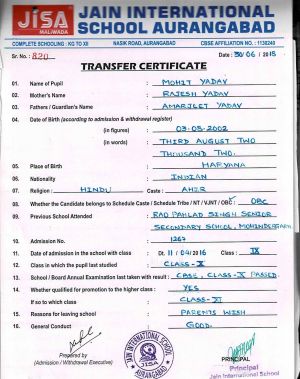 JiSA
MALIWADA
JAIN INTERNATIONAL
SCHOOL AURANGABAD
COMPLETE SCHOOLING : KG TO XII NASIK ROAD, AURANGABAD CBSE AFFILIATION NO. : 1130240
Sr. No. : 820 Date : 30/06/2015
TRANSFER CERTIFICATE
01. Name of Pupil : MOHIT YADAV
02. Mother's Name : RAJESH YADAV
03. Fathers / Guardian's Name : AMARJEET YADAV
04. Date of Birth (according to admission & withdrawal register)
(in figures) : 03-08-2002
(in words) : THIRD AUGUST TWO
THOUSAND TWO.
05. Place of Birth : HARYANA
06. Nationality : INDIAN
07. Religion : HINDU Caste : AHIR
08. Whether the Candidate belongs to Schedule Caste / Schedule Tribe / NT / VJNT / OBC : OBC
09. Previous School Attended : RAO PAHLAD SINGH SENIOR
SECONDARY SCHOOL, MOHINDERGARH
10. Admission No. : 1267
11. Date of admission in the school with class : Dt. 11/04/2016 Class : IX
12. Class in which the pupil last studied : CLASS-X
13. School / Board Annual Examination last taken with result : CBSE, CLASS-X PASSED
14. Whether qualified for promotion to the higher class : YES
If so to which class : CLASS-XI
15. Reasons for leaving school : PARENTS WISH
16. General Conduct : GOOD.
Prepared by
(Admission / Withdrawal Executive)
JAIN INTERNATIONAL SCHOOL
JISA
AURANGABAD
PRINCIPAL
Principal
Jain International School
AURANGABAD